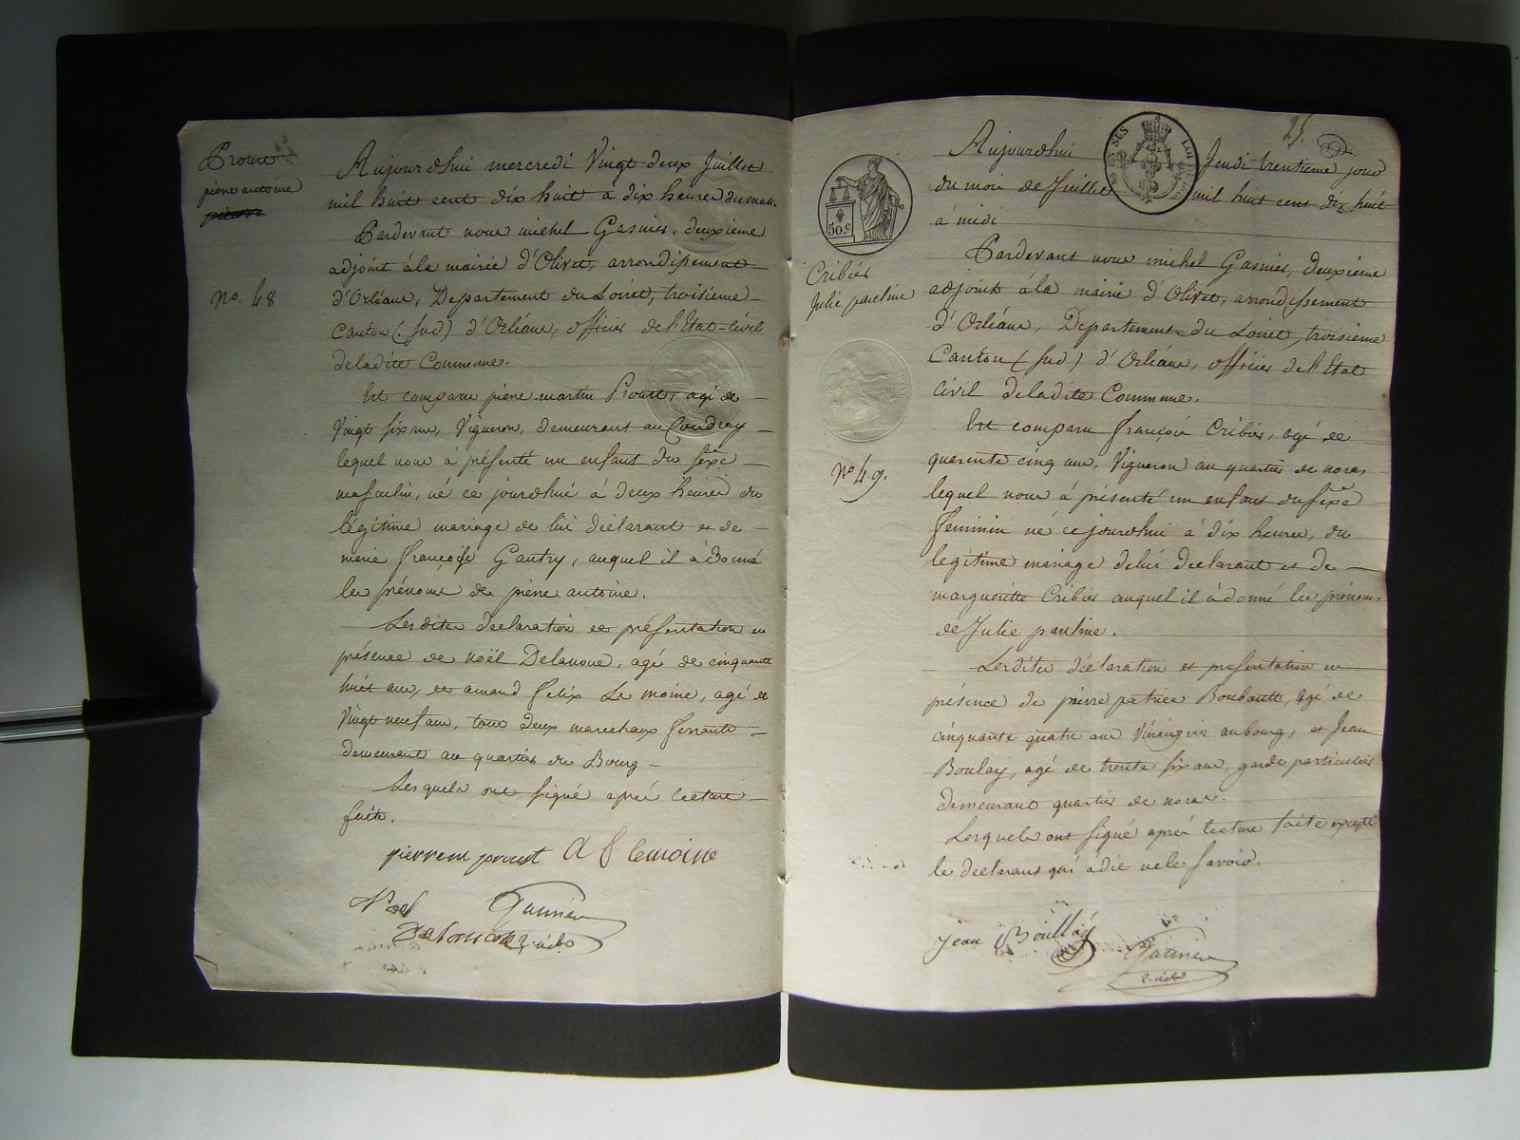 Prout
pierre antoine
pierre
No. 48
Aujourdhui mercredi Vingt deux Juillet
mil huit cent dix huit a dix heures du mat.
Pardevant nous michel Gasnier, deuxieme
adjoint à la mairie d'Olivet, arrondissement
d'Orléans, Departement du Loiret, troisieme
Canton (Sud) d'Orléans, officier de l'Etat-civil
deladite Commune.
Est comparu pierre martin Prout, agé de
Vingt six ans, Vigneron, demeurant au Coudray
lequel nous à présenté un enfant du sexe
masculin, né ce jourdhui à deux heures du
légitime mariage de lui déclarant et de
marie françoise Gautry, auquel il à donné
les prénoms de pierre antoine.
Lesdites declaration et présentation en
présence de noël Delanoue, agé de cinquante
huit ans, et amand felix Le moine, agé de
Vingt neuf ans, tous deux marechaux ferrants
demeurant au quartier du Bourg
Lesquels ont signé après lecture
faite.
pierrem prout A f lemoine
Noel Gasnier
Delanoue adjoint
25
50 c
Cribier
Julie pauline
No. 49.
Aujourdhui Jeudi trentieme jour
du mois de Juillet mil huit cent dix huit
à midi
Pardevant nous michel Gasnier, deuxieme
adjoint à la mairie d'Olivet, arrondissement
d'Orléans, Departement du Loiret, troisieme
Canton (Sud) d'Orléans, officier de l'Etat
civil deladite Commune.
Est comparu françois Cribier, agé de
quarente cinq ans, Vigneron au quartier de noras
lequel nous à présenté un enfant du sexe
feminin né ce jourdhui à dix heures, du
legitime mariage delui declarant et de
marguerite Cribier auquel il à donné les prénoms
de Julie pauline.
Lesdites déclaration et presentation en
présence de pierre patrice Boubault, agé de
cinquante quatre ans Vinaigrier aubourg, et Jean
Boulay, agé de trente six ans, garde particulier
demeurant quartier de noras.
Lesquels ont signé après lecture faite excepté
le declarant qui à dit ne le savoir.
jean Boullay Gasnier
adjoint